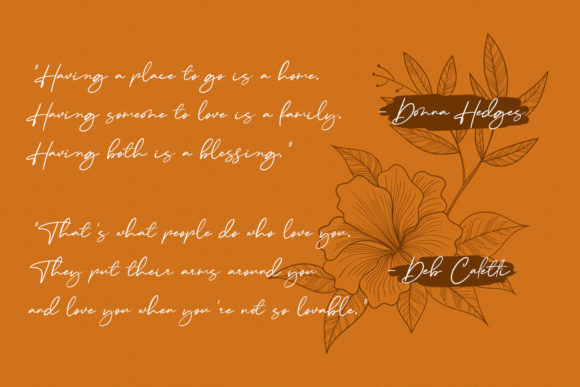 "Having a place to go is a home.
Having someone to love is a family.
Having both is a blessing."
- Donna Hedges
"That's what people do who love you.
They put their arms around you
and love you when you're not so lovable."
- Deb Caletti